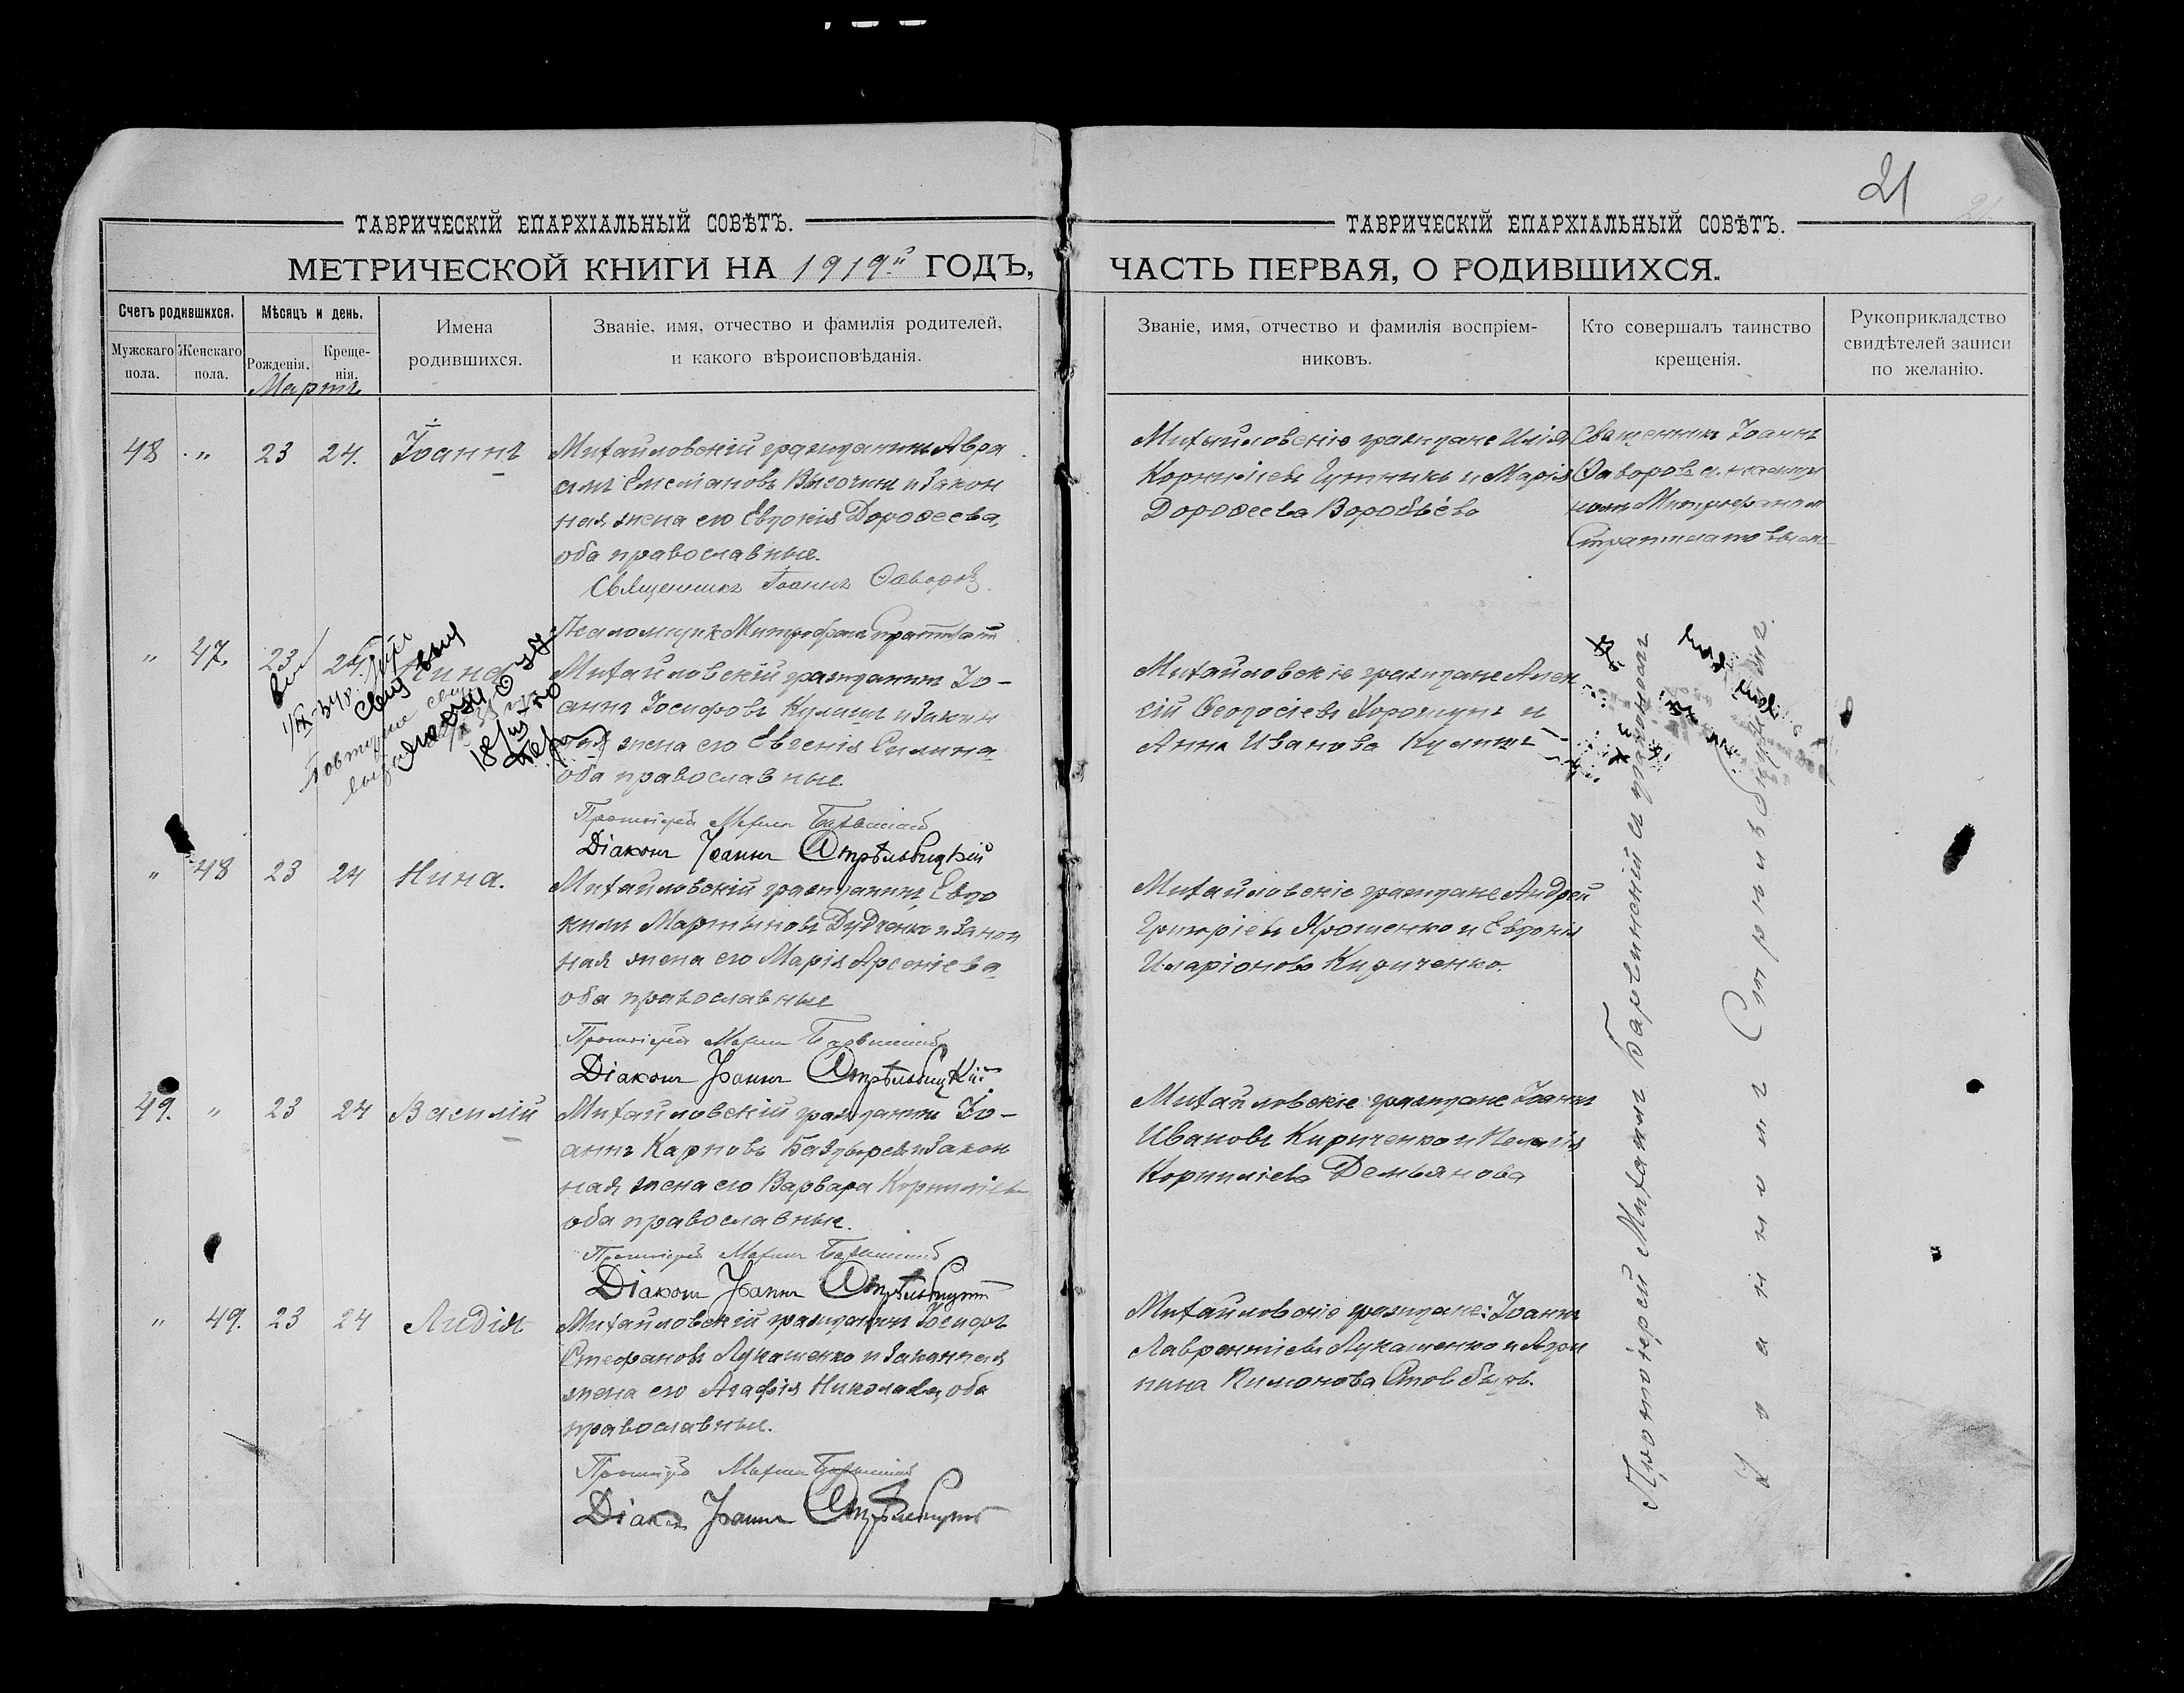 21
ТАВРИЧЕСКІЙ ЕПАРХІАЛЬНЫЙ СОВѢТЪ.
МЕТРИЧЕСКОЙ КНИГИ НА 1919й ГОДЪ,
Счетъ родившихся.
Мужскаго пола.
Женскаго пола.
Мѣсяцъ и день.
Рожденія.
Креще-
нія.
Мартъ
Имена
родившихся.
Званіе, имя, отчество и фамилія родителей,
и какого вѣроисповѣданія.
48 " 23 24. Іоаннъ
Михайловскій гражданинъ Авра
амъ Емеліановъ Височинъ и закон
ная жена его Евдокія Дороѳеева,
оба православные.
Священникъ Іоаннъ Ѳаворов
Псаломщикъ Митрофанъ
" 47. 23 24 Нина
Михайловскій гражданинъ Іо-
аннъ Іосифовъ Кулишъ и закон
ная жена его Евгенія Силина
оба православные.
Протоіерей Михаилъ
Діаконъ Іоаннъ Стрѣльбицкій
" 48 23 24 Нина.
Михайловскій гражданинъ Евдо
кимъ Мартыновъ Дудченко и закон
ная жена его Марія Арсеніева
оба православные
Протоіерей Михаилъ
Діаконъ Іоаннъ Стрѣльбицкій
49. " 23 24 Василій
Михайловскій гражданинъ Іо-
аннъ Карповъ и закон
ная жена его Варвара Корниліева
оба православные.
Протоіерей Михаилъ
Діаконъ Іоаннъ Стрѣльбицкій
" 49. 23 24 Лидія
Михайловскій гражданинъ Іосифъ
Стефановъ Лукашенко и законная
жена его Агафія Николаева, оба
православные.
Протоіерей Михаилъ
Діаконъ Іоаннъ Стрѣльбицкій
ТАВРИЧЕСКІЙ ЕПАРХІАЛЬНЫЙ СОВѢТЪ.
ЧАСТЬ ПЕРВАЯ, О РОДИВШИХСЯ.
Званіе, имя, отчество и фамилія воспріем-
никовъ.
Кто совершалъ таинство
крещенія.
Рукоприкладство
свидѣтелей записи
по желанію.
Михайловскіе граждане Илія
Корниліевъ Гутникъ и Марія
Дороѳеева Воробьёва
Священникъ Іоаннъ
Ѳаворовъ
Митрофаном
Михайловскіе граждане Алек
сій Ѳеодосіевъ Хорошунъ и
Анна Иванова Кулишъ
Михайловскіе граждане Андрей
Григоріевъ Ярошенко и Евдокія
Иларіонова Кириченко.
Михайловскіе граждане Іоаннъ
Ивановъ Кириченко и Пелагія
Корниліева Демьянова
Михайловскіе граждане: Іоаннъ
Лаврентіевъ Лукашенко и Агрип
пина Пимонова
Протоіерей Михаилъ съ діакономъ
Іоанномъ Стрѣльбицкимъ.